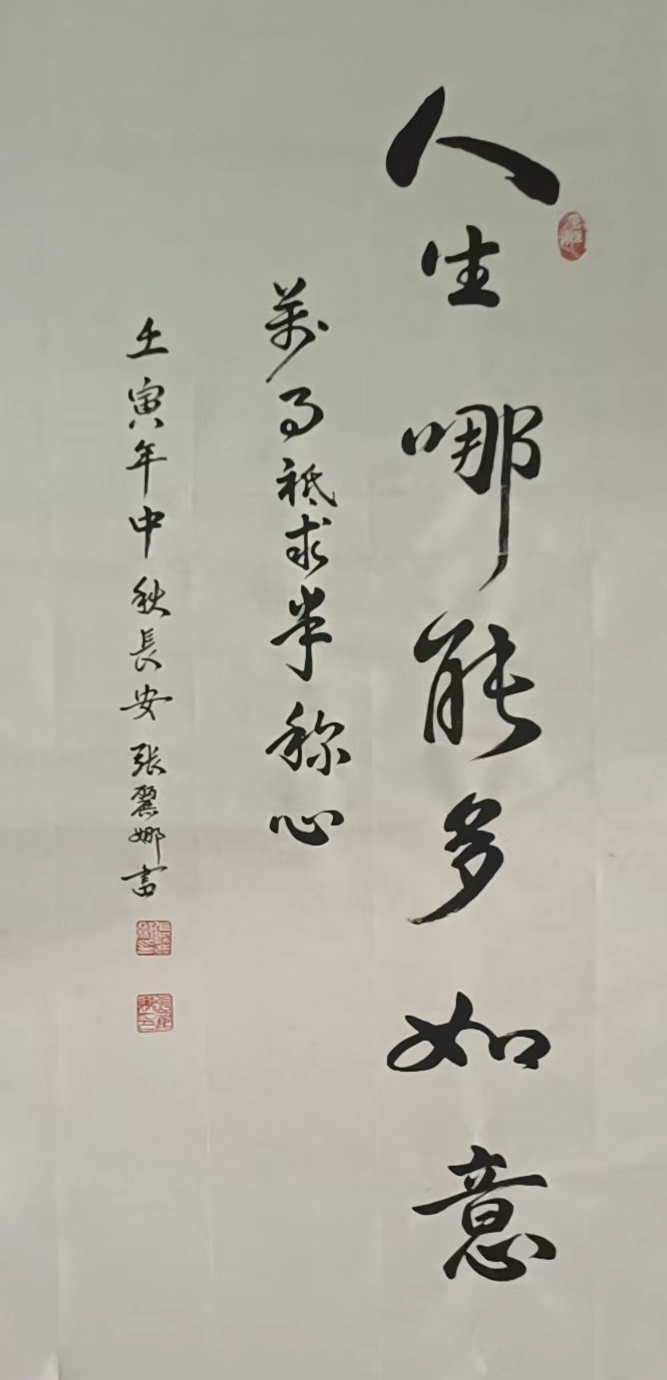 人生哪能多如意
萬事祗求半称心
壬寅年中秋長安張麗娜書